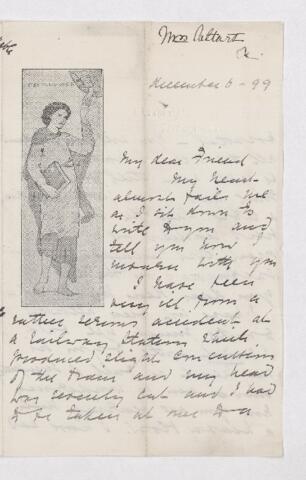 December 6 - 99
My dear Friend
My heart
almost fails me
as I sit down to
write to you and
tell you how
I have been
very ill from a
rather serious accident at
a railway station which
produced slight concussion
of the brain and my head
was severely cut and I had
to be taken at once to a